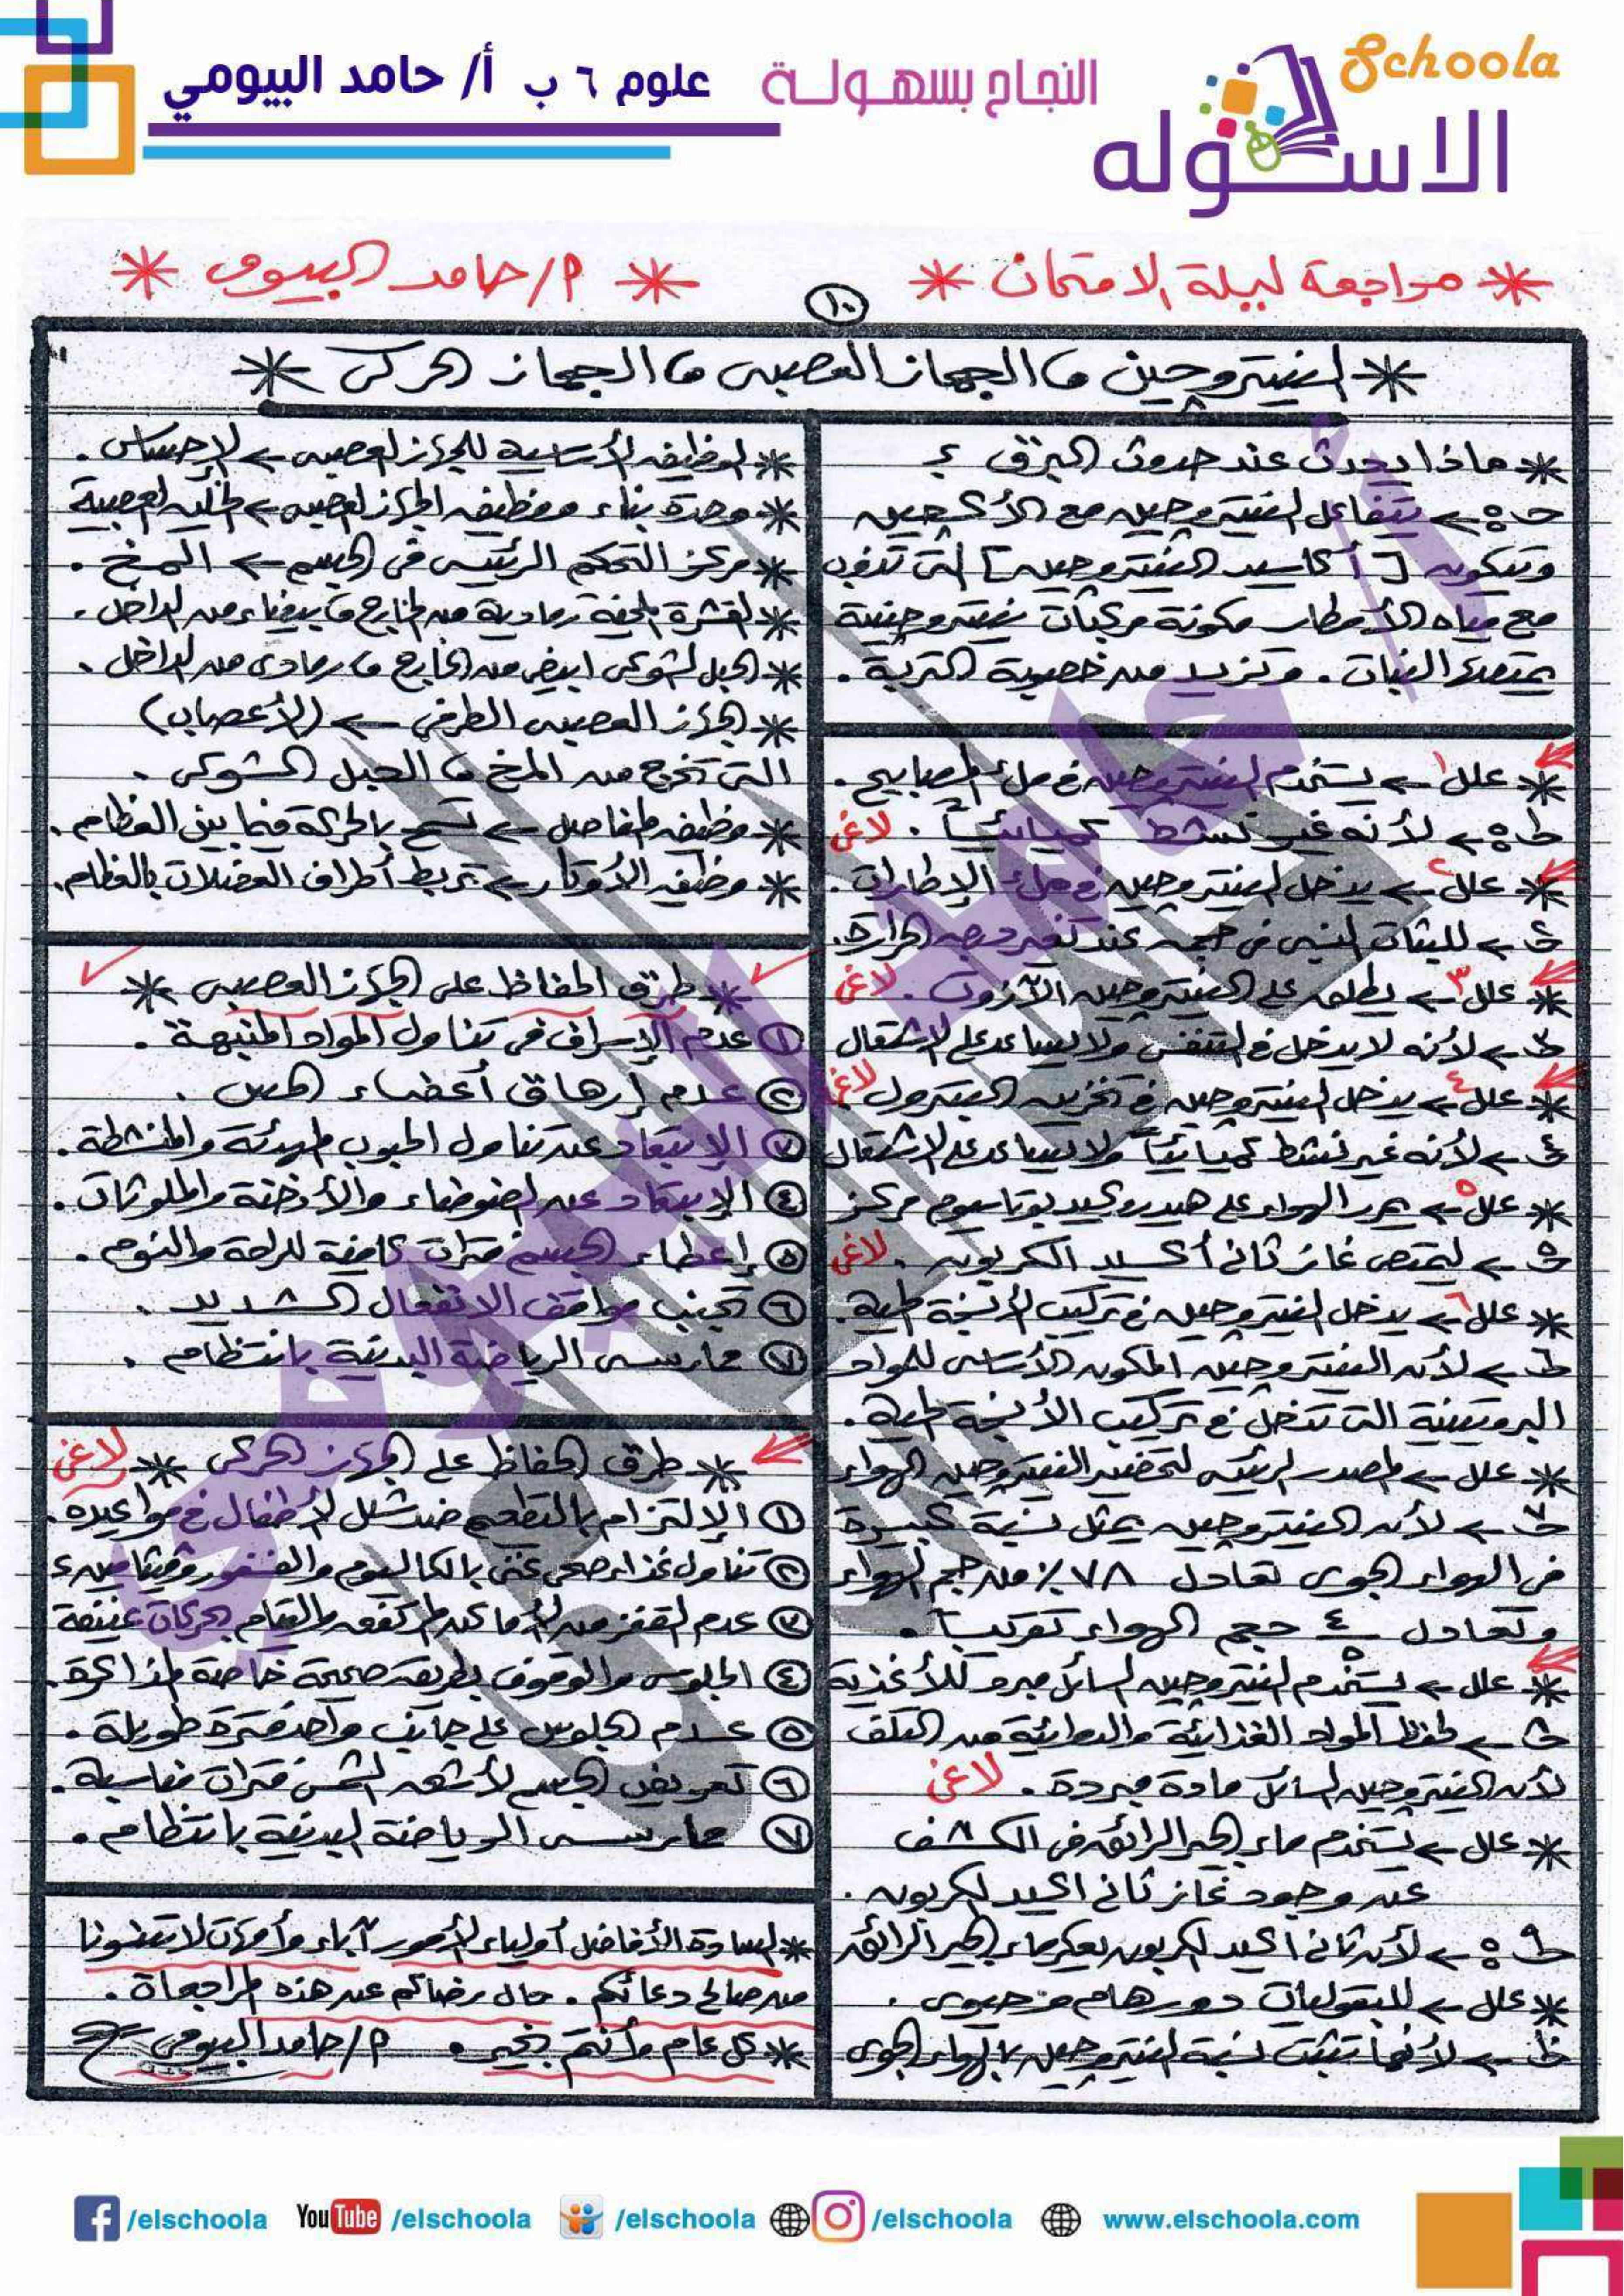 Schoola
الاسكوله
النجاح بسهولة
علوم ٦ ب أ/ حامد البيومي
* مراجعة ليلة الامتحان *
* م/حامد البيومى *
١٠
* النيتروجين ، الجهاز العصبى ، الجهاز الحركى *
* ماذا يحدث عند حدوث البرق ؟
جـ ← يتفاعل النيتروجين مع الأكسجين
وتتكون [أكاسيد النيتروجين] التى تذوب
مع مياه الأمطار مكونة مركبات نيتروجينية
يمتصها النبات . وتزيد من خصوبة التربة .
* علل ١ ← يستخدم النيتروجين فى ملئ المصابيح .
جـ ← لأنه غير نشط كيميائياً . لاغى
* علل ٢ ← يدخل النيتروجين فى ملئ الإطارات .
جـ ← للثبات النسبى فى حجمه عند تغير درجه الحرارة .
* علل ٣ ← يطلق على النيتروجين الآزوت . لاغى
جـ ← لأنه لا يدخل فى التنفس ولا يساعد على الاشتعال
* علل ٤ ← يدخل النيتروجين فى تخزين البترول لاغى
جـ ← لأنه غير نشط كيميائياً ولا يساعد على الاشتعال
* علل ٥ ← يمرر الهواء على هيدروكسيد بوتاسيوم مركز
جـ ← ليمتص غاز ثانى أكسيد الكربون . لاغى
* علل ٦ ← يدخل النيتروجين فى تركيب الأنسجة الحية .
جـ ← لأن النيتروجين المكون الأساسى للمواد
البروتينية التى تدخل فى تركيب الأنسجة الحية .
* علل ← المصدر الرئيسى لتحضير النيتروجين الهواء
جـ ← لأن النيتروجين يمثل نسبة كبيرة
فى الهواء الجوى تعادل ٧٨٪ من حجم الهواء
وتعادل ٤/٥ حجم الهواء تقريباً .
* علل ← يستخدم النيتروجين السائل مبرد للأغذية
جـ ← لحفظ المواد الغذائية والدوائية من التلف
لأن النيتروجين السائل مادة مبردة . لاغى
* علل ← يستخدم ماء الجير الرائق فى الكشف
عن وجود غاز ثانى اكسيد الكربون .
جـ ← لأن ثانى اكسيد الكربون يعكر ماء الجير الرائق
* علل ← للبقوليات دور هام وحيوى .
جـ ← لأنها تثبت نسبة النيتروجين بالهواء الجوى
* الوظيفه الأساسية للجهاز العصبى ← الإحساس .
* وحدة بناء ووظيفه الجهاز العصبى ← الخليه العصبية
* مركز التحكم الرئيسى فى الجسم ← المخ .
* القشرة المخية رمادية من الخارج ، بيضاء من الداخل .
* الحبل الشوكى ابيض من الخارج ، رمادى من الداخل .
* الجهاز العصبى الطرفى ← (الأعصاب)
التى تخرج من المخ ، الحبل الشوكى .
* وظيفه المفاصل ← تسمح بالحركة فيما بين العظام .
* وظيفه الأوتار ← تربط أطراف العضلات بالعظام .
* طرق الحفاظ على الجهاز العصبى *
١ عدم الإسراف فى تناول المواد المنبهة .
٢ عدم إرهاق أعضاء الحس .
٣ الإبتعاد عن تناول الحبوب المهدئة والمنشطة .
٤ الإبتعاد عن الضوضاء والأدخنة والملوثات .
٥ إعطاء الجسم فترات كافية للراحة والنوم .
٦ تجنب مواقف الانفعال الشديد .
٧ ممارسه الرياضة البدنية بانتظام .
* طرق الحفاظ على الجهاز الحركى * لاغى
١ الإلتزام بالتطعيم ضد شلل الأطفال فى مواعيده .
٢ تناول غذاء صحى غنى بالكالسيوم والفسفور وفيتامين د
٣ عدم القفز من الأماكن المرتفعه والقيام بحركات عنيفة
٤ الجلوس والوقوف بطريقه صحيحة خاصة المذاكرة .
٥ عدم الجلوس على جانب واحد فترة طويلة .
٦ تعريض الجسم لأشعه الشمس فترات مناسبة .
٧ ممارسه الرياضة البدنية بانتظام .
* السادة الأفاضل أولياء الأمور آباء وأمهات لا تنسونا
من صالح دعائكم . حال رضاكم عن هذه المراجعات .
* كل عام وأنتم بخير . م/حامد البيومى
/elschoola
YouTube /elschoola
/elschoola
/elschoola
www.elschoola.com